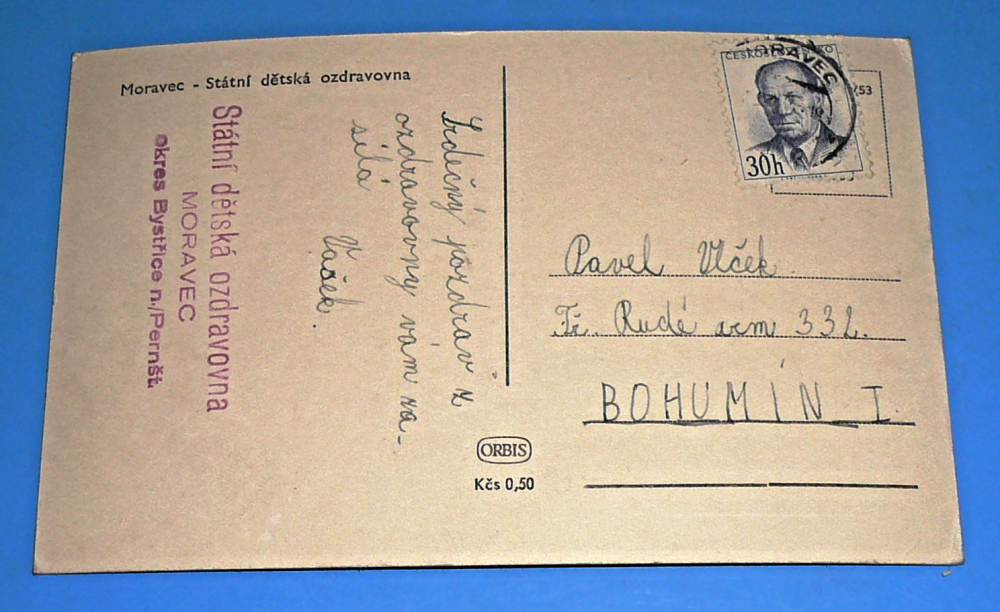 Moravec - Státní dětská ozdravovna
Státní dětská ozdravovna
MORAVEC
okres Bystřice n./Pernšt.
Srdečný pozdrav z
ozdravovny vám za-
sílá
Vašek.
ORBIS
Kčs 0,50
MORAVEC
ČESKOSLOVENSKO
30h
/53
Pavel Vlček
Tř. Rudé arm 332.
BOHUMÍN I.